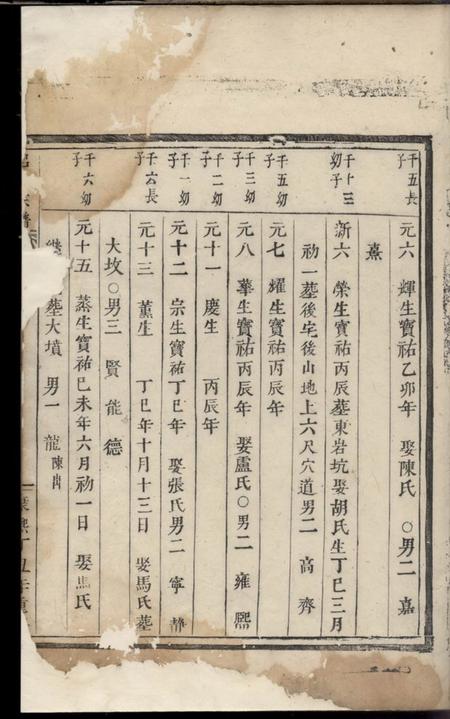 千五長子
元六 輝生寶祐乙卯年 娶陳氏 ○男二 嘉
熹
千十三幼子
新六 榮生寶祐丙辰墓東岩坑娶胡氏生丁巳三月
初一墓後宅後山地上六尺穴道男二 高齊
千五幼子
元七 耀生寶祐丙辰年
千三幼子
元八 華生寶祐丙辰年 娶盧氏○男二 雍熙
千二幼子
元十一 慶生 丙辰年
千一幼子
元十二 宗生寶祐丁巳年 娶張氏男二 寧靜
千六長子
元十三 薰生 丁巳年十月十三日 娶馬氏墓
大坟○男三 賢能德
千六幼子
元十五 蒸生寶祐己未年六月初一日 娶馬氏
墓大墳 男一 龍